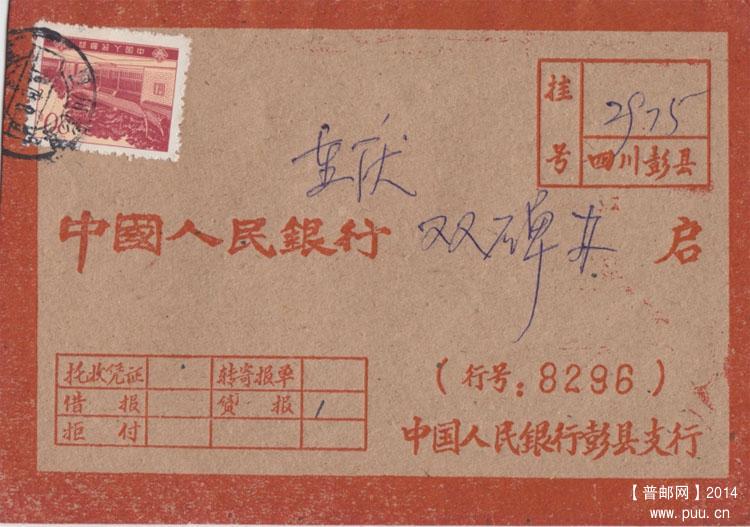 中国人民邮政
20
挂号
2975
四川彭县
重庆
中國人民銀行 双碑办 启
托收凭证 转寄报单
借报 贷报 1
拒付
(行号:8296)
中国人民銀行彭县支行
【普邮网】2014
www.puu.cn